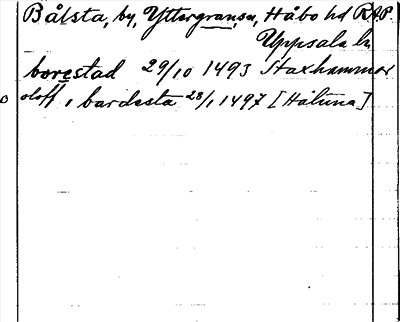 Bålsta, by, Yttergransa, Håbo hd RAP.
Uppsala ln
borestad 29/10 1493 Staxhammar
oloff i bardesta 28/1 1497 [Håtuna]